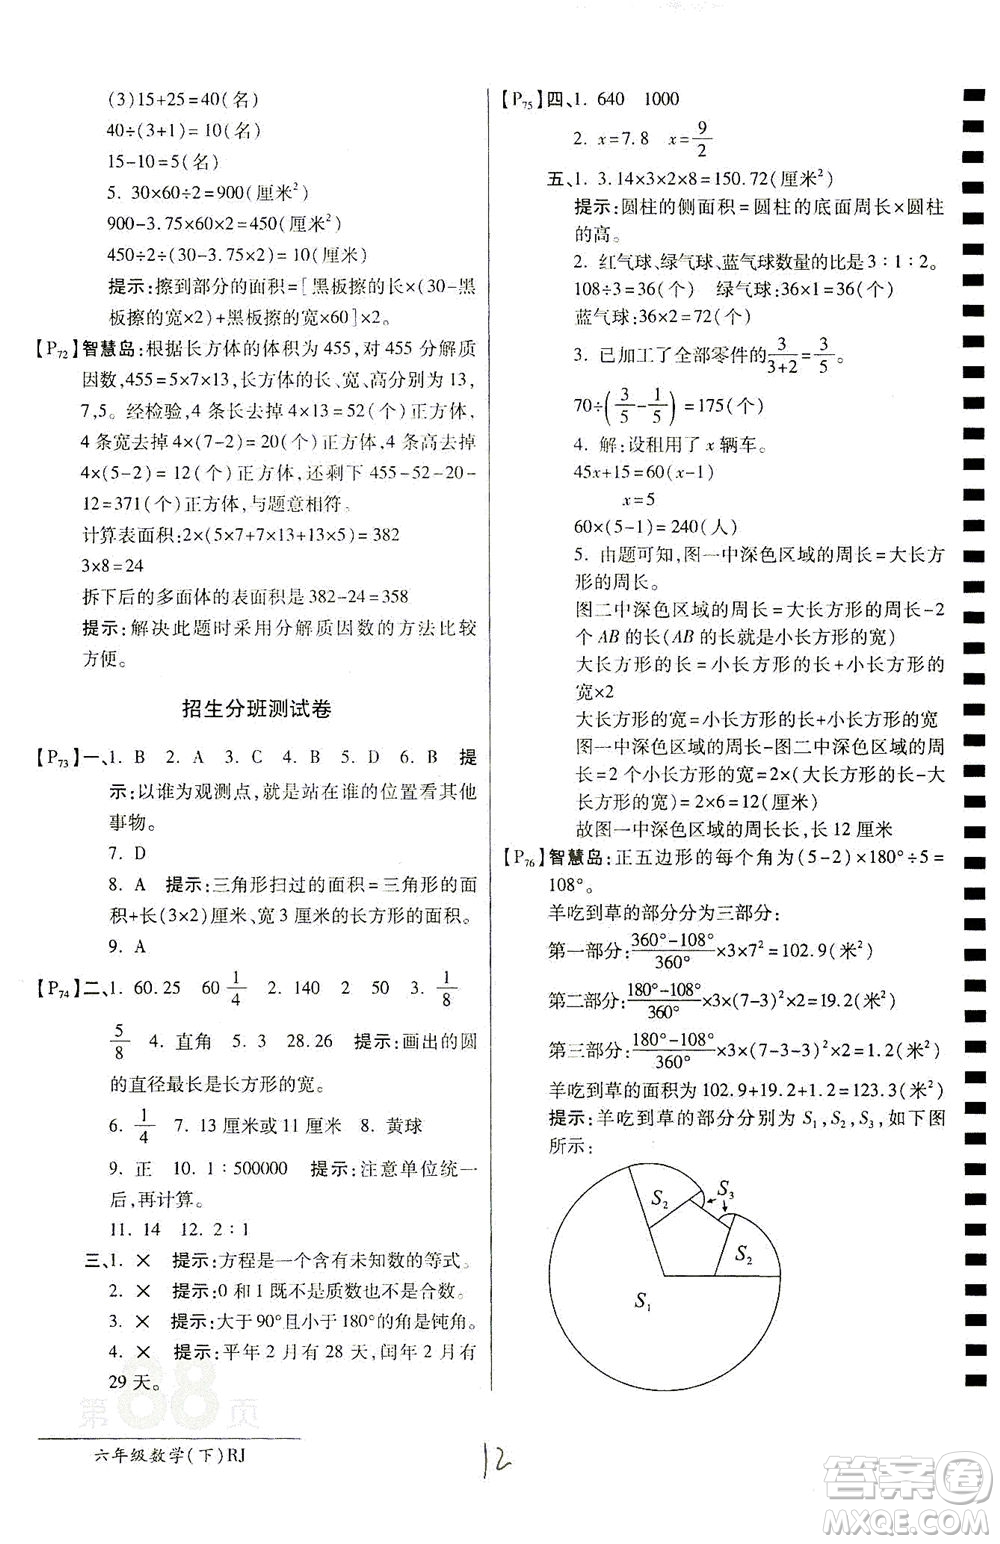 (3)15+25=40(名)
40÷(3+1)=10(名)
15-10=5(名)
5. 30×60÷2=900(厘米²)
900-3.75×60×2=450(厘米²)
450÷2÷(30-3.75×2)=10(厘米)
提示:擦到部分的面积=[黑板擦的长×(30-黑
板擦的宽×2)+黑板擦的宽×60]×2。
【P72】智慧岛:根据长方体的体积为455,对455分解质
因数,455=5×7×13,长方体的长、宽、高分别为13,
7,5。经检验,4条长去掉4×13=52(个)正方体,
4条宽去掉4×(7-2)=20(个)正方体,4条高去掉
4×(5-2)=12(个)正方体,还剩下455-52-20-
12=371(个)正方体,与题意相符。
计算表面积:2×(5×7+7×13+5×13)=382
3×8=24
拆下后的多面体的表面积是382-24=358
提示:解决此题时采用分解质因数的方法比较
方便。
招生分班测试卷
【P73】一、1. B 2. A 3. B 4. B 5. D 6. B 提
示:以谁为观测点,就是站在谁的位置看其他
事物。
7. D
8. A 提示:三角形扫过的面积=三角形的面
积+长(3×2)厘米、宽3厘米的长方形的面积。
9. A
【P74】二、1. 60.25 60 1/4 2. 140 2 50 3. 1/8
5/8 4. 直角 5. 3 28.26 提示:画出的圆
的直径最长是长方形的宽。
6. 1/4 7. 10厘米或11厘米 8. 黄球
9. 正 10. 1:500000 提示:注意单位统一
后,再计算。
11. 14 12. 2:1
三、1. × 提示:方程是一个含有未知数的等式。
2. × 提示:0和1既不是质数也不是合数。
3. × 提示:大于90°且小于180°的角是钝角。
4. × 提示:平年2月有28天,闰年2月有
29天。
第68页
六年级数学(下)RJ
12
【P75】四、1. 640 1000
2. x=7.8 x=9/2
五、1. 3.14×3×2×8=150.72(厘米²)
提示:圆柱的侧面积=圆柱的底面周长×圆柱
的高。
2. 红气球、绿气球、蓝气球数量的比是3:1:2。
108÷3=36(个) 绿气球:36×1=36(个)
蓝气球:36×2=72(个)
3. 已加工了全部零件的3/(3+2)=3/5。
70÷(3/5-1/5)=175(个)
4. 解:设租用了x辆车。
45x+15=60(x-1)
x=5
60×(5-1)=240(人)
5. 由题可知,图一中深色区域的周长=大长方
形的周长。
图二中深色区域的周长=大长方形的周长-2
个AB的长(AB的长就是小长方形的宽)
大长方形的长=小长方形的长+小长方形的
宽×2
大长方形的宽=小长方形的长+小长方形的宽
图一中深色区域的周长-图二中深色区域的周
长=2×小长方形的宽=2×(大长方形的长-大
长方形的宽)=2×6=12(厘米)
故图一中深色区域的周长长,长12厘米
【P76】智慧岛:正五边形的每个角为(5-2)×180°÷5=
108°。
羊吃到草的部分分为三部分:
第一部分:(360°-108°)/360°×3×7²=102.9(米²)
第二部分:(180°-108°)/360°×3×(7-3)²×2=19.2(米²)
第三部分:(180°-108°)/360°×3×(7-3-3)²×2=1.2(米²)
羊吃到草的面积为102.9+19.2+1.2=123.3(米²)
提示:羊吃到草的部分分别为S₁,S₂,S₃,如下图
所示:
S₂
S₃
S₂
S₁
答案圈
MXQE.COM